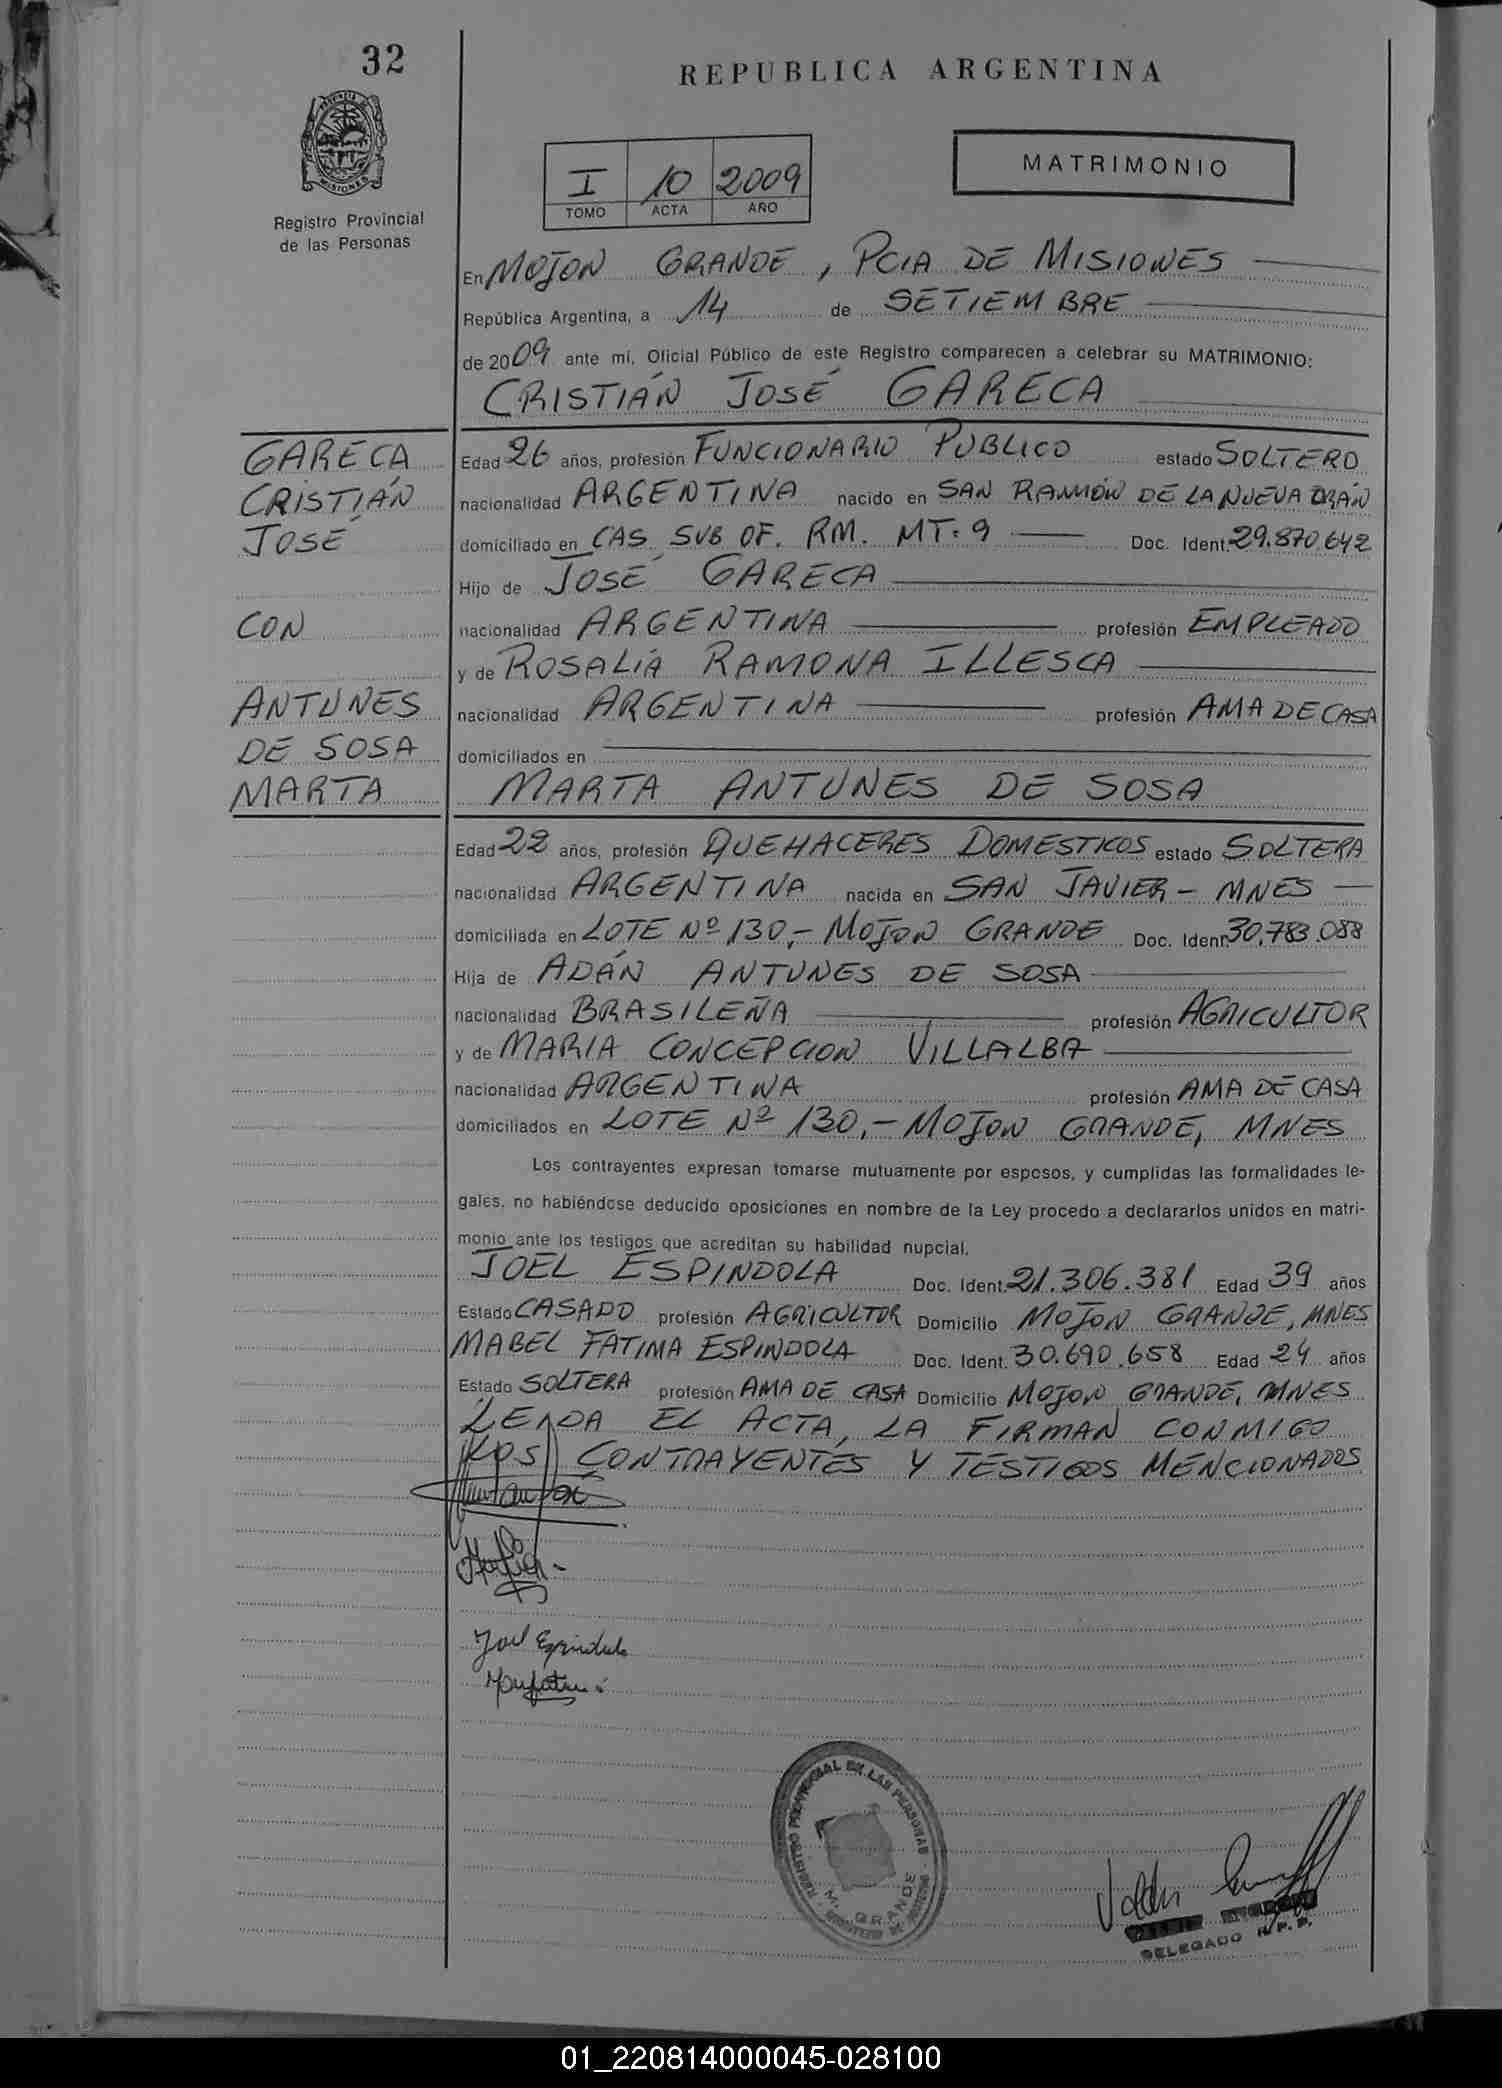 32
REPUBLICA ARGENTINA
PROVINCIA DE
MISIONES
Registro Provincial
de las Personas
I 10 2009
TOMO ACTA AÑO
MATRIMONIO
En MOJON GRANDE, PCIA DE MISIONES
República Argentina, a 14 de SETIEMBRE
de 2009 ante mí, Oficial Público de este Registro comparecen a celebrar su MATRIMONIO:
CRISTIÁN JOSÉ GARECA
GARECA
CRISTIÁN
JOSÉ
CON
ANTUNES
DE SOSA
MARTA
Edad 26 años, profesión FUNCIONARIO PUBLICO estado SOLTERO
nacionalidad ARGENTINA nacido en SAN RAMÓN DE LA NUEVA ORÁN
domiciliado en CAS. SUB OF. RM. MT: 9 Doc. Ident. 29.870.642
Hijo de JOSÉ GARECA
nacionalidad ARGENTINA profesión EMPLEADO
y de ROSALÍA RAMONA ILLESCA
nacionalidad ARGENTINA profesión AMA DE CASA
domiciliados en
MARTA ANTUNES DE SOSA
Edad 22 años, profesión QUEHACERES DOMESTICOS estado SOLTERA
nacionalidad ARGENTINA nacida en SAN JAVIER - MNES
domiciliada en LOTE Nº 130,- MOJON GRANDE Doc. Ident. 30.783.088
Hija de ADÁN ANTUNES DE SOSA
nacionalidad BRASILEÑA profesión AGRICULTOR
y de MARIA CONCEPCION VILLALBA
nacionalidad ARGENTINA profesión AMA DE CASA
domiciliados en LOTE Nº 130,- MOJON GRANDE, MNES
Los contrayentes expresan tomarse mutuamente por esposos, y cumplidas las formalidades le-
gales, no habiéndose deducido oposiciones en nombre de la Ley procedo a declararlos unidos en matri-
monio ante los testigos que acreditan su habilidad nupcial.
JOEL ESPINDOLA Doc. Ident. 21.306.381 Edad 39 años
Estado CASADO profesión AGRICULTOR Domicilio MOJON GRANDE, MNES
MABEL FATIMA ESPINDOLA Doc. Ident. 30.690.658 Edad 24 años
Estado SOLTERA profesión AMA DE CASA Domicilio MOJON GRANDE, MNES
LEIDA EL ACTA, LA FIRMAN CONMIGO
LOS CONTRAYENTES Y TESTIGOS MENCIONADOS
Joel Espindola
REGISTRO PROVINCIAL DE LAS PERSONAS
M. GRANDE
DELEGADO R.P.P.
01_220814000045-028100